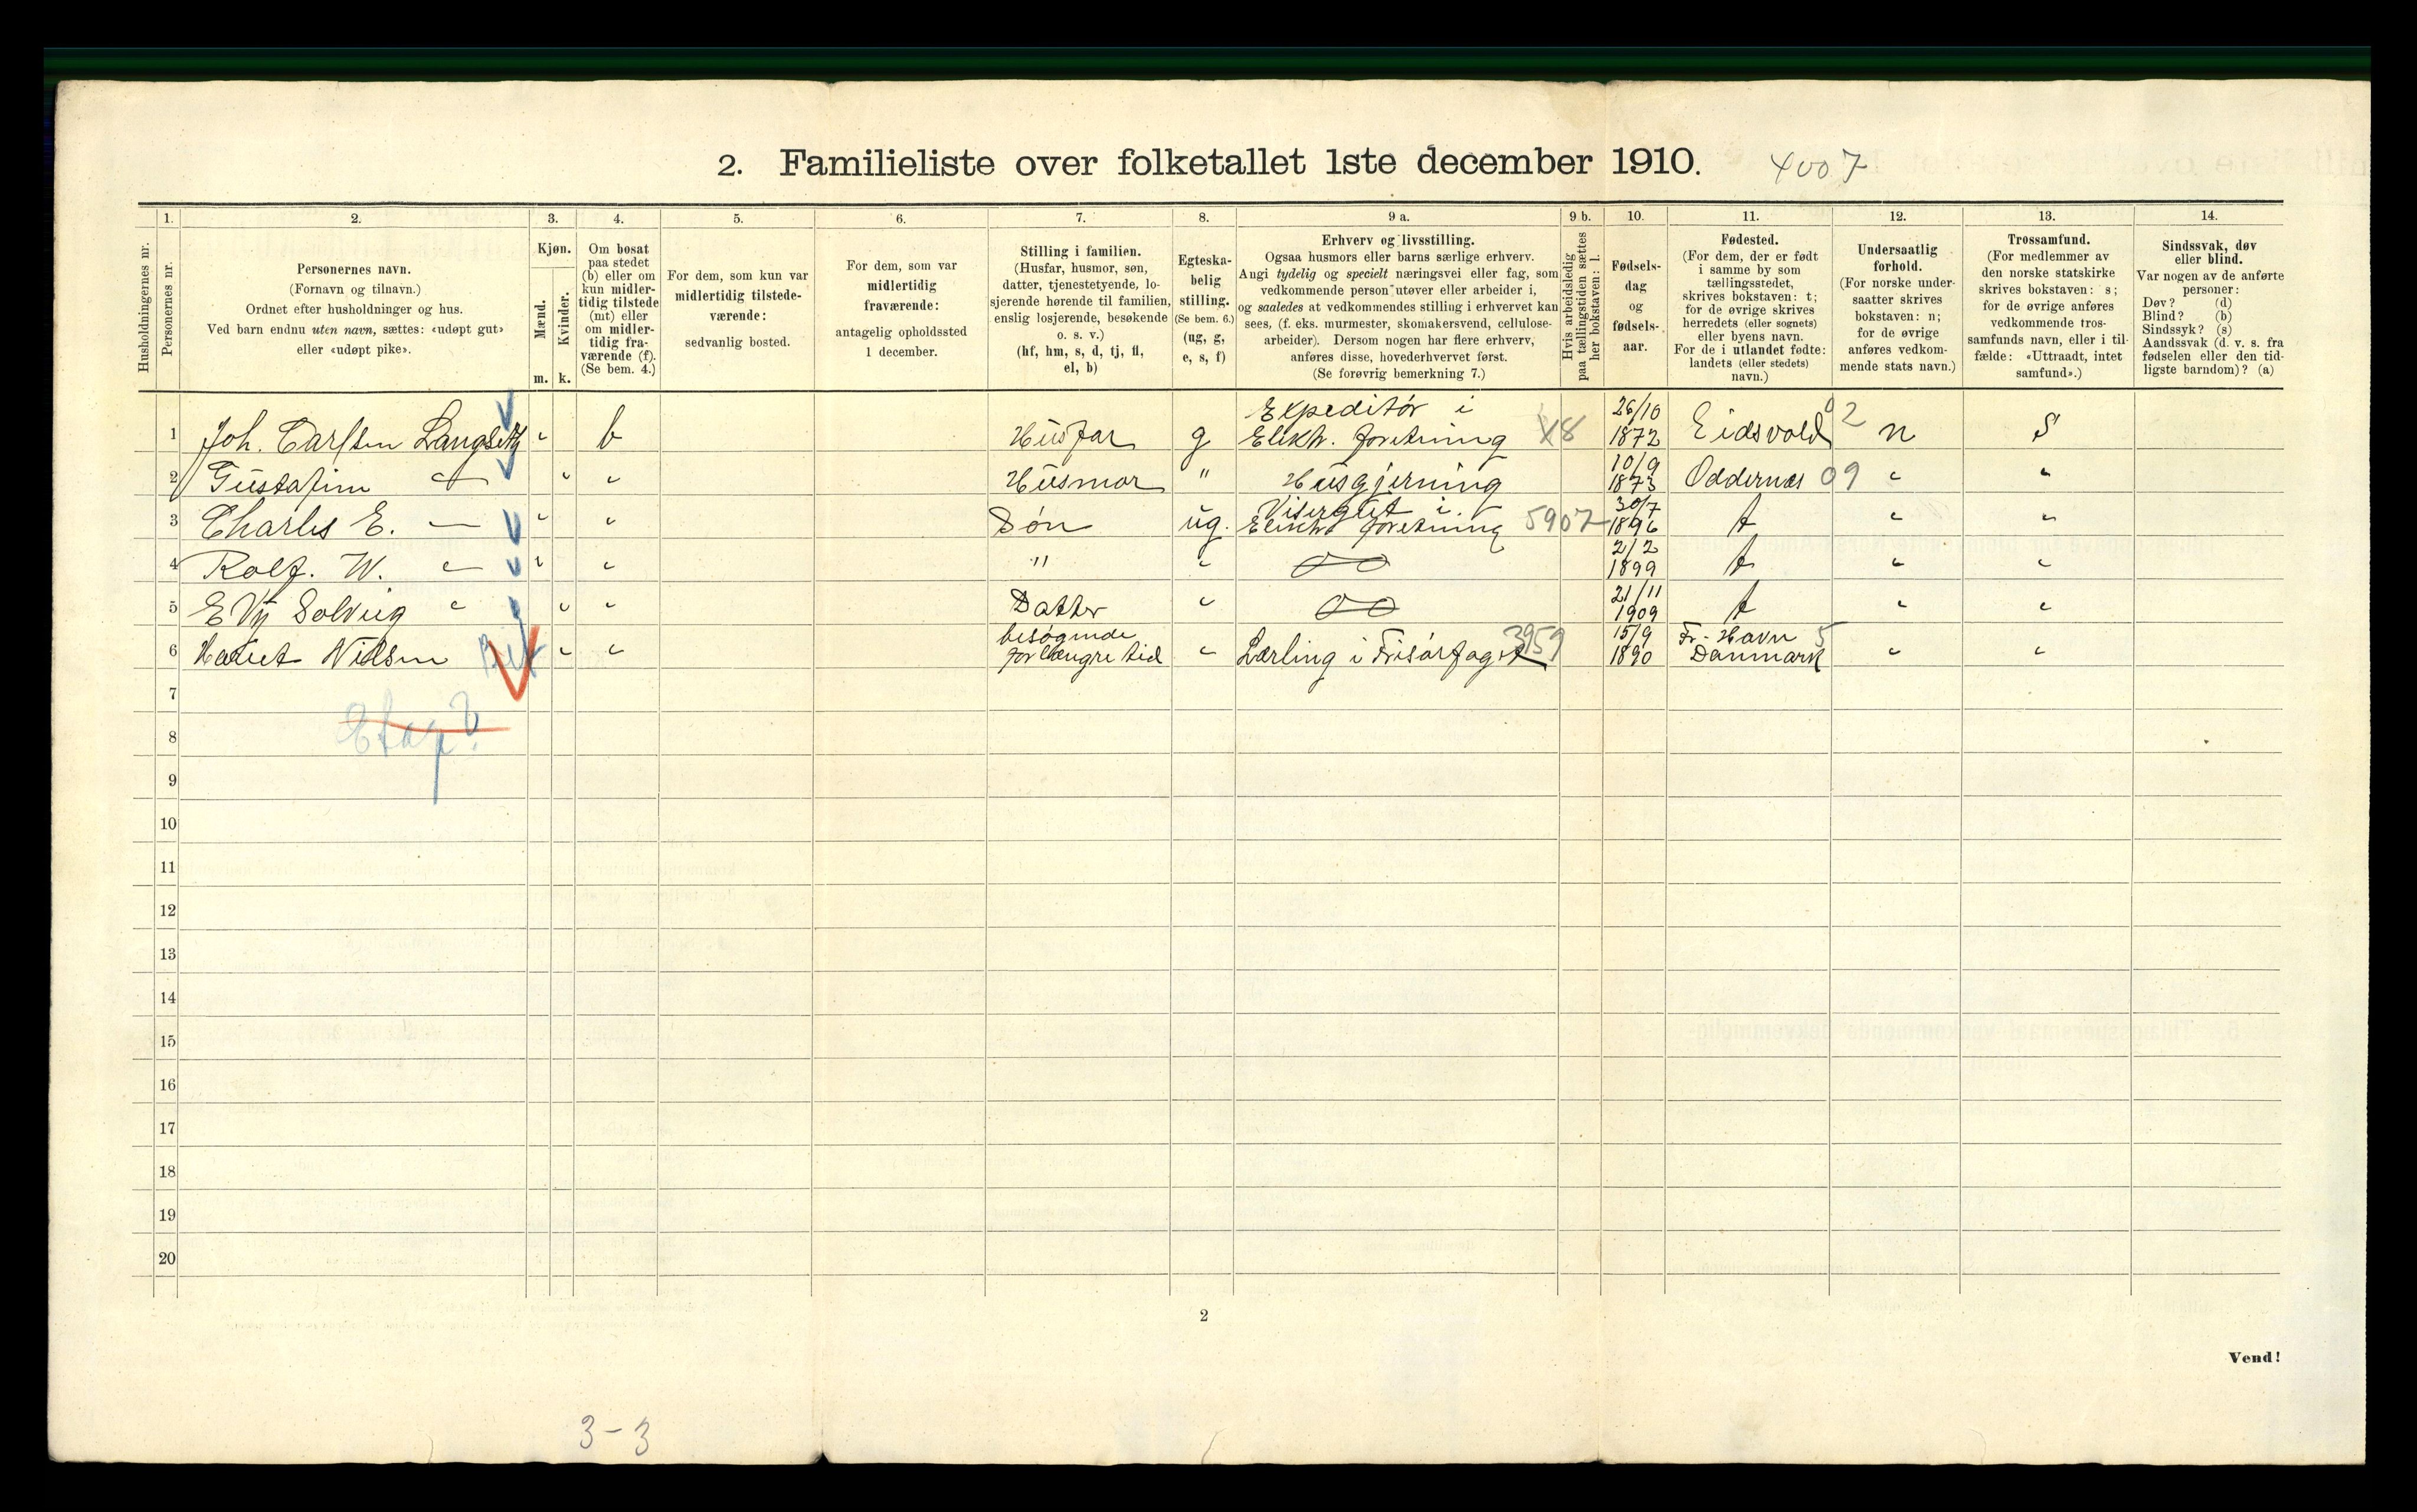 2. Familieliste over folketallet 1ste december 1910. 4007
Husholdningernes nr.
1.
Personernes nr.
2.
Personernes navn.
(Fornavn og tilnavn.)
Ordnet efter husholdninger og hus.
Ved barn endnu uten navn, sættes: «udøpt gut»
eller «udøpt pike».
3.
Kjøn.
Mænd.
m.
Kvinder.
k.
4.
Om bosat
paa stedet
(b) eller om
kun midler-
tidig tilstede
(mt) eller
om midler-
tidig fra-
værende (f).
(Se bem. 4.)
5.
For dem, som kun var
midlertidig tilstede-
værende:
sedvanlig bosted.
6.
For dem, som var
midlertidig
fraværende:
antagelig opholdssted
1 december.
7.
Stilling i familien.
(Husfar, husmor, søn,
datter, tjenestetyende, lo-
sjerende hørende til familien,
enslig losjerende, besøkende
o. s. v.)
(hf, hm, s, d, tj, fl,
el, b)
8.
Egteska-
belig
stilling.
(Se bem. 6.)
(ug, g,
e, s, f)
9 a.
Erhverv og livsstilling.
Ogsaa husmors eller barns særlige erhverv.
Angi tydelig og specielt næringsvei eller fag, som
vedkommende person utøver eller arbeider i,
og saaledes at vedkommendes stilling i erhvervet kan
sees, (f. eks. murmester, skomakersvend, cellulose-
arbeider). Dersom nogen har flere erhverv,
anføres disse, hovederhvervet først.
(Se forøvrig bemerkning 7.)
9 b.
Hvis arbeidsledig
paa tællingstiden sættes
her bokstaven: l.
10.
Fødsels-
dag
og
fødsels-
aar.
11.
Fødested.
(For dem, der er født
i samme by som
tællingsstedet,
skrives bokstaven: t;
for de øvrige skrives
herredets (eller sognets)
eller byens navn.
For de i utlandet fødte:
landets (eller stedets)
navn.)
12.
Undersaatlig
forhold.
(For norske under-
saatter skrives
bokstaven: n;
for de øvrige
anføres vedkom-
mende stats navn.)
13.
Trossamfund.
(For medlemmer av
den norske statskirke
skrives bokstaven: s;
for de øvrige anføres
vedkommende tros-
samfunds navn, eller i til-
fælde: «Uttraadt, intet
samfund».)
14.
Sindssvak, døv
eller blind.
Var nogen av de anførte
personer:
Døv? (d)
Blind? (b)
Sindssyk? (s)
Aandssvak (d. v. s. fra
fødselen eller den tid-
ligste barndom)? (a)
1 Joh. Carlsen Langseth " b Husfar g Expeditør i Elektr. forretning 26/10 1872 Eidsvold 02 n S
2 Gustafine " " Husmor " Husgjerning 10/9 1873 Oddernes 09 " "
3 Charles E. — " " Søn ug. Visergut i Elektr forretning 5907 30/7 1896 t " "
4 Rolf. W. " " " " " 2/2 1899 t " "
5 Evy Solveig " " " Datter " 21/11 1909 t " "
6 Nielsen " " besøgende for længre tid " Lærling i Frisørfaget 3959 15/9 1890 Fr. Havn Danmark 5 " "
7
8 Etag?
9
10
11
12
13
14
15
16
17
18
19
20
2
Vend!
3-3